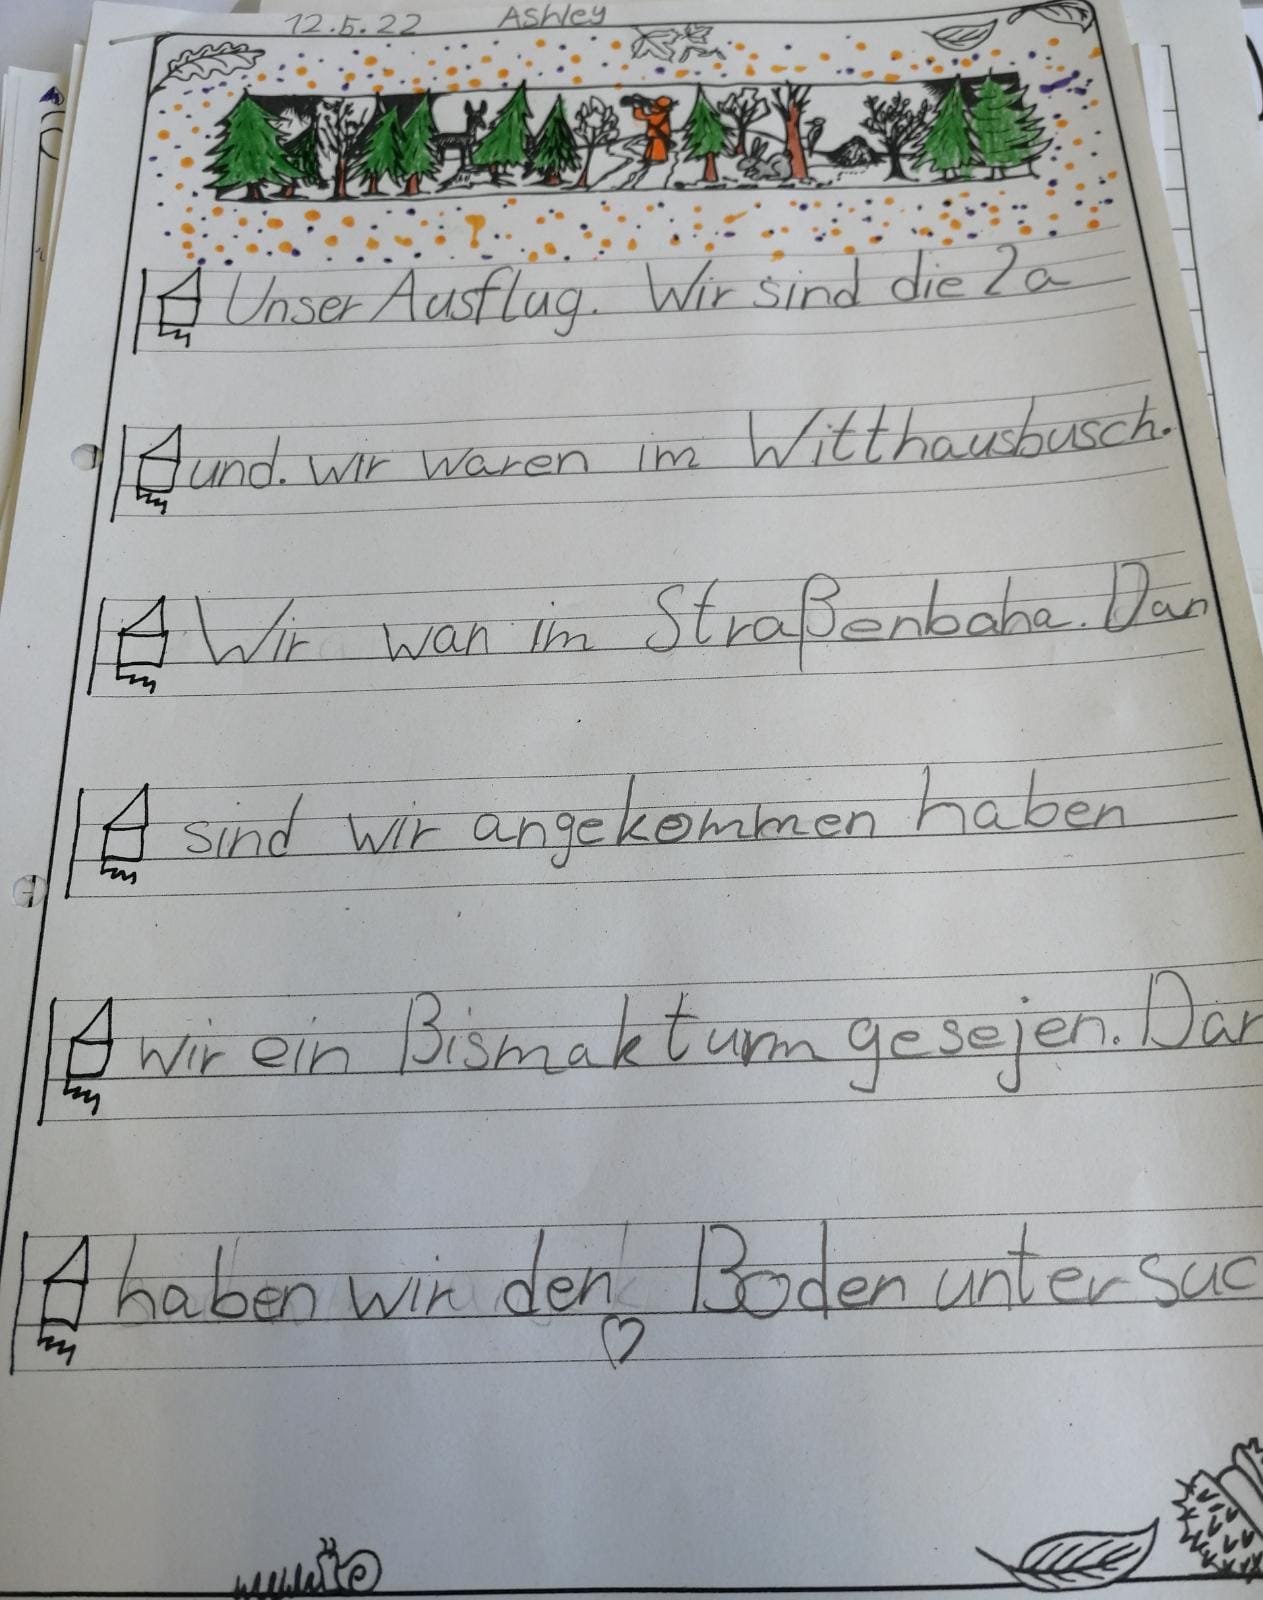 12.5.22 Ashley
Unser Ausflug. Wir sind die 2a
und. wir waren im Witthausbusch.
Wir wan im Straßenbaha. Dan
sind wir angekommen haben
wir ein Bismakturm gesejen. Dan
haben wir den Boden untersuc